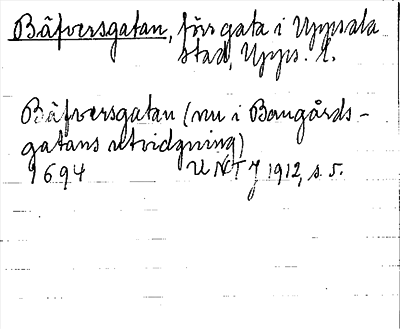 Bäfversgatan, förr gata i Uppsala
stad, Upps. l.
Bäfversgatan (nu i Bangårds-
gatans utvidgning)
1694 UNT J 1912, s. 5.